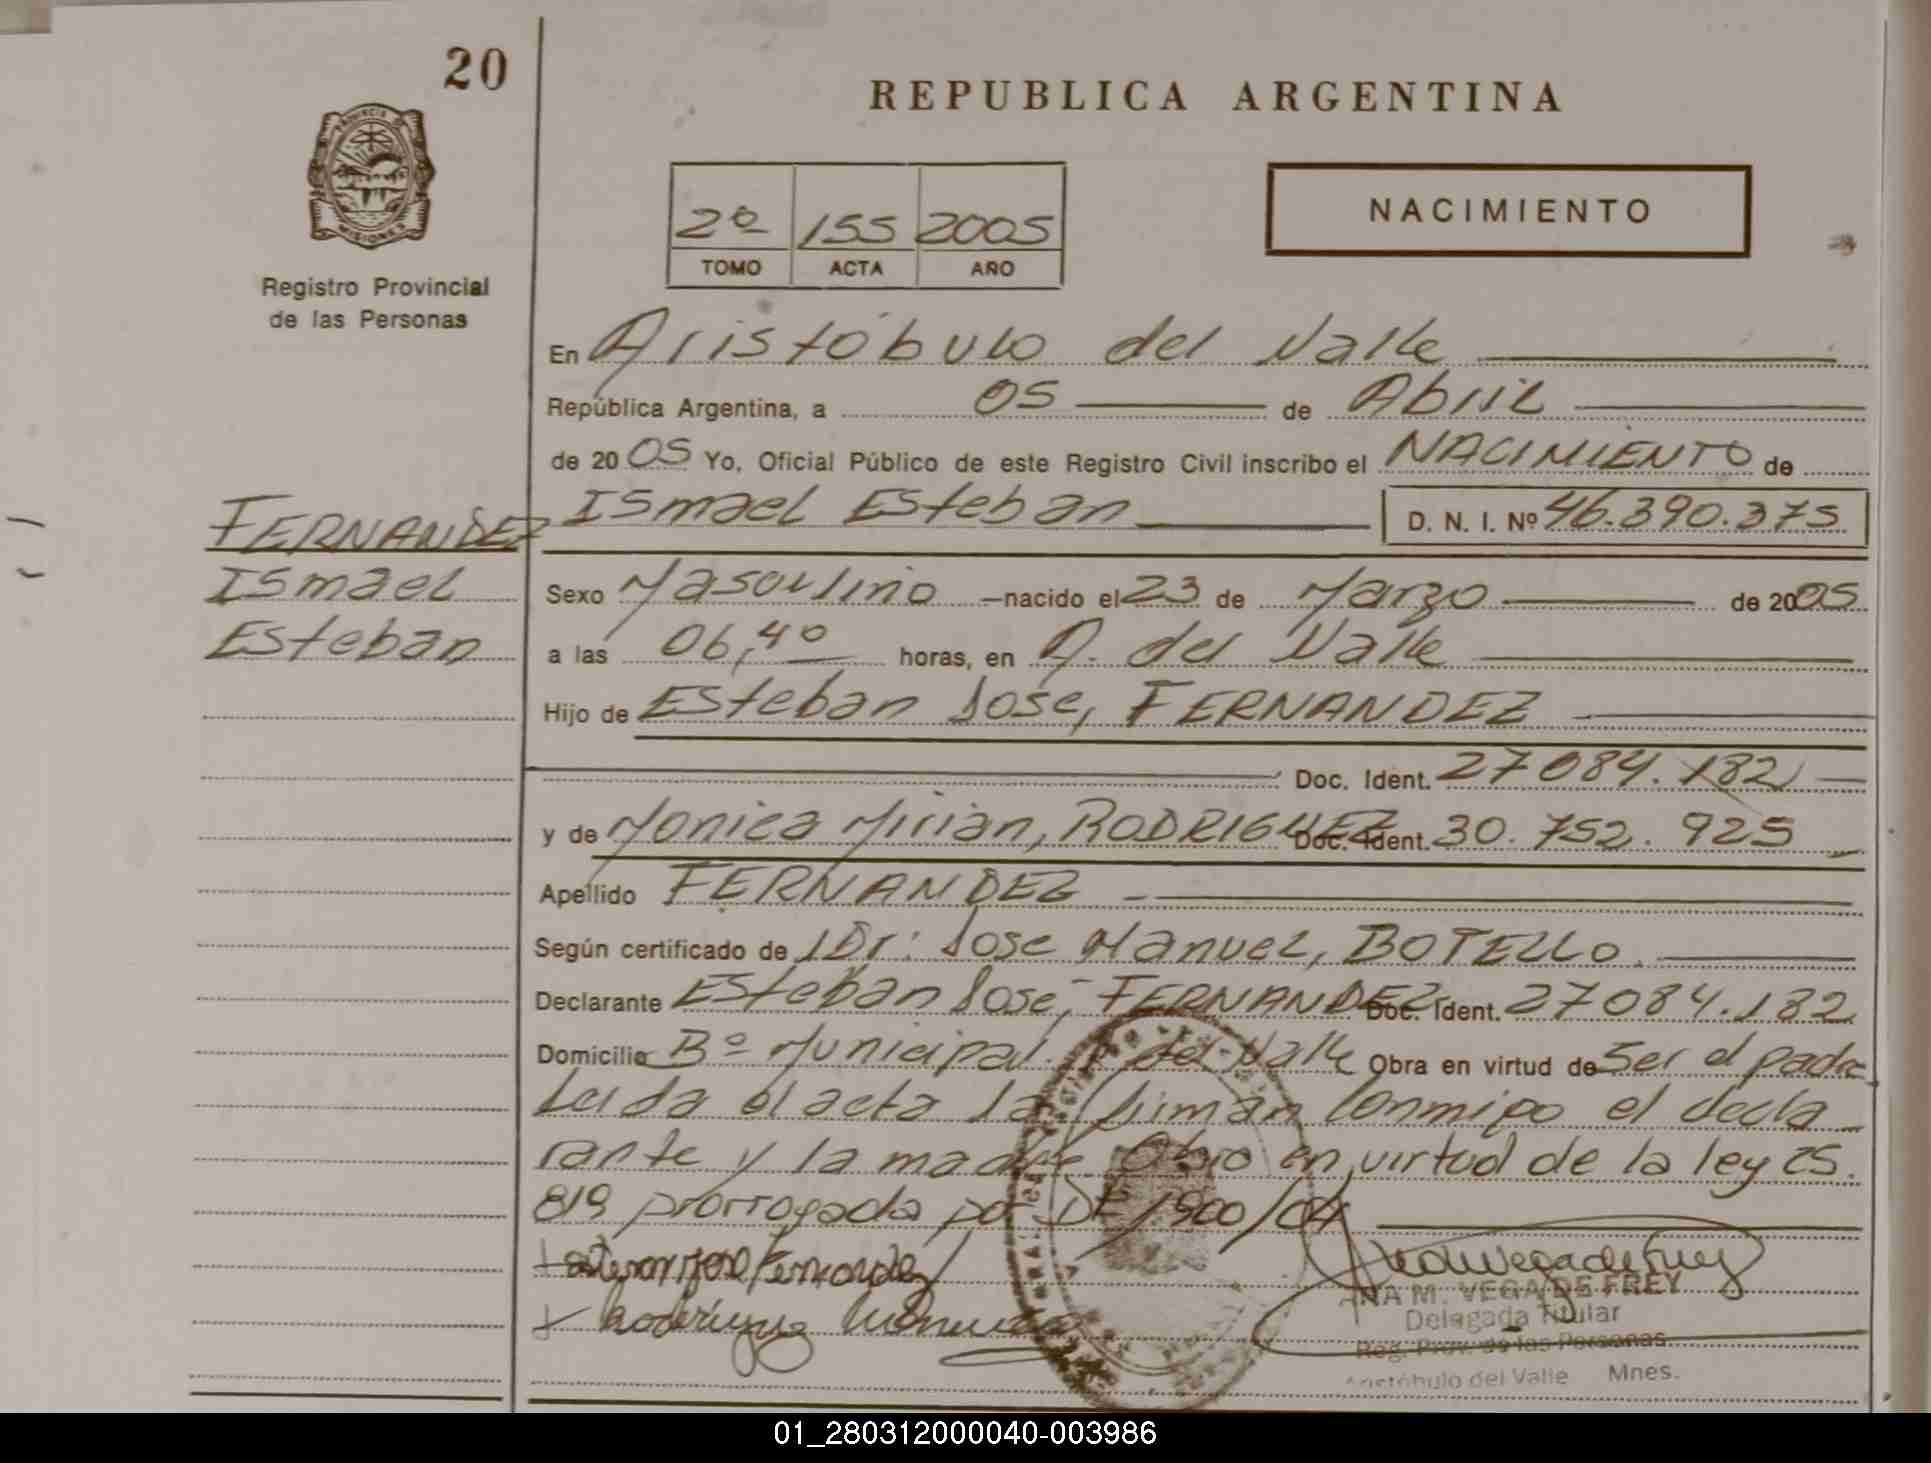 20
REPUBLICA ARGENTINA
PROVINCIA DE
MISIONES
Registro Provincial
de las Personas
2º 155 2005
TOMO ACTA AÑO
NACIMIENTO
En Aristóbulo del Valle
República Argentina, a 05 de Abril
de 2005 Yo, Oficial Público de este Registro Civil inscribo el NACIMIENTO de
FERNANDEZ Ismael Esteban D. N. I. Nº 46.390.375
Ismael
Esteban
Sexo Masculino nacido el 23 de Marzo de 2005
a las 06,40 horas, en A. del Valle
Hijo de Esteban José, FERNANDEZ
Doc. Ident. 27084.182
y de Monica Mirian, RODRIGUEZ Doc. Ident. 30.752.925
Apellido FERNANDEZ
Según certificado de Dr: Jose Manuel, BOTELLO.
Declarante Esteban José, FERNANDEZ Doc. Ident. 27084.182
Domicilio Bº Municipal. A. del Valle Obra en virtud de Ser el padre
Leida el acta la firman Conmigo el decla
rante y la madre Obro en virtud de la ley 25.
819 prorrogada por DE 1900/04
Esteban José Fernandez
Rodríguez
ANA M. VEGA DE FREY
Delegada Titular
Reg. Prov. de las Personas
Aristóbulo del Valle Mnes.
01_280312000040-003986